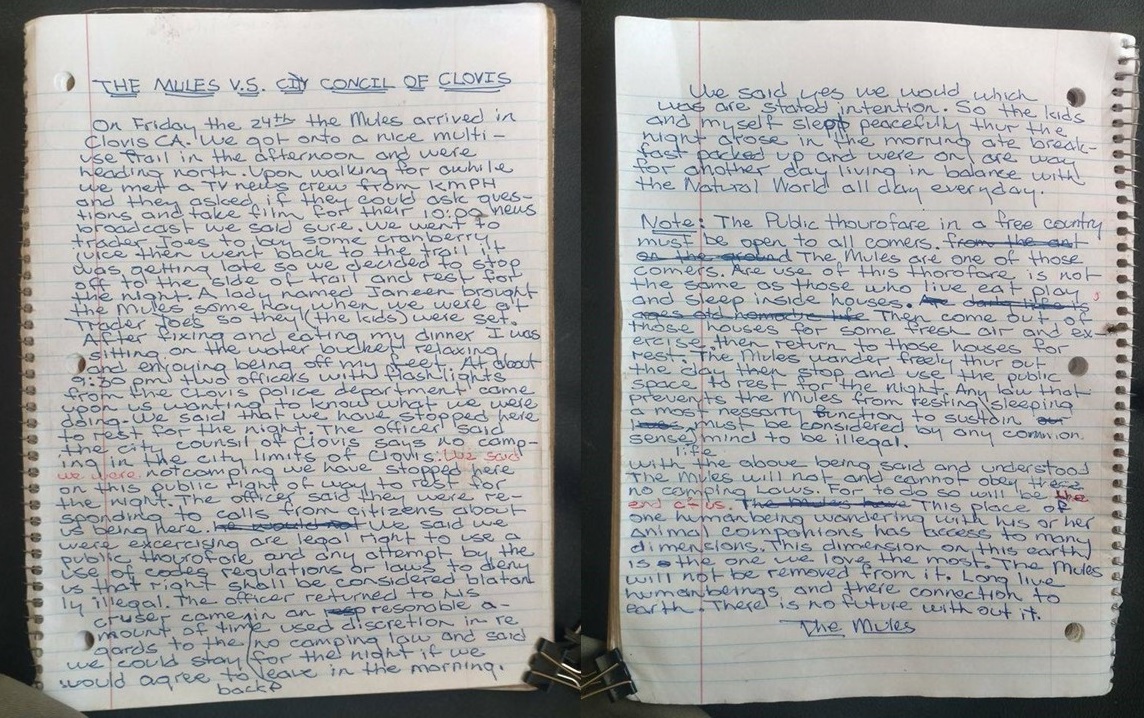 THE MULES V.S. CITY CONCIL OF CLOVIS
On Friday the 24th the Mules arrived in
Clovis CA. We got onto a nice multi-
use trail in the afternoon and were
heading north. Upon walking for awhile
we met a TV news crew from KMPH
and they asked if they could ask ques-
tions and take film for their 10:00 news
broadcast we said sure. We went to
trader Joes to buy some cranberry
juice then went back to the trail. It
was getting late so we decided to stop
off to the side of trail and rest for
the night. A lady named Janeen brought
the mules some hay when we were at
Trader Joes so they (the kids) were set.
After fixing and eating my dinner I was
sitting on the water bucket relaxing
and enjoying being off my feet. At about
9:30 pm two officers with flashlights
from the Clovis police department came
upon us wanting to know what we were
doing. We said that we have stopped here
to rest for the night. The officer said
the city counsil of Clovis says no camp-
ing in the city limits of Clovis. We said
we were not camping we have stopped here
on this public right of way to rest for
the night. The officer said they were re-
sponding to calls from citizens about
us being here. We said we
were excercising are legal right to use a
public thourofare and any attempt by the
use of codes regulations or laws to deny
us that right shall be considered blatan
ly illegal. The officer returned to his
cruser came in an resonable a-
mount of time used discretion in re
gards to the no camping law and said
we could stay for the night if we
would agree to leave in the morning.
back
We said yes we would which
was are stated intention. So the kids
and myself slept peacefully thur the
night arose in the morning ate break-
fast packed up and were on are way
for another day living in balance with
the Natural World all day everyday.
Note: The Public thourofare in a free country
must be open to all comers. from the ant
on the ground The Mules are one of those
comers. Are use of this thorofare is not
the same as those who live eat play
and sleep inside houses.
Then come out of
those houses for some fresh air and ex
ercise then return to those houses for
rest. The Mules wander freely thur out
the day then stop and use the public
space to rest for the night. Any law that
prevents the Mules from resting, sleeping
a most nessarry function to sustain our
life must be considered by any common
sense mind to be illegal.
With the above being said and understood
The Mules will not and cannot obey these
no camping Laws. For to do so will be the
end of us. The Mules have This place of
one humanbeing wandering with his or her
animal companions has access to many
dimensions. This dimension on this earth
is the one we loves the most. The Mules
will not be removed from it. Long live
humanbeings and there connection to
earth. There is no future with out it.
The Mules